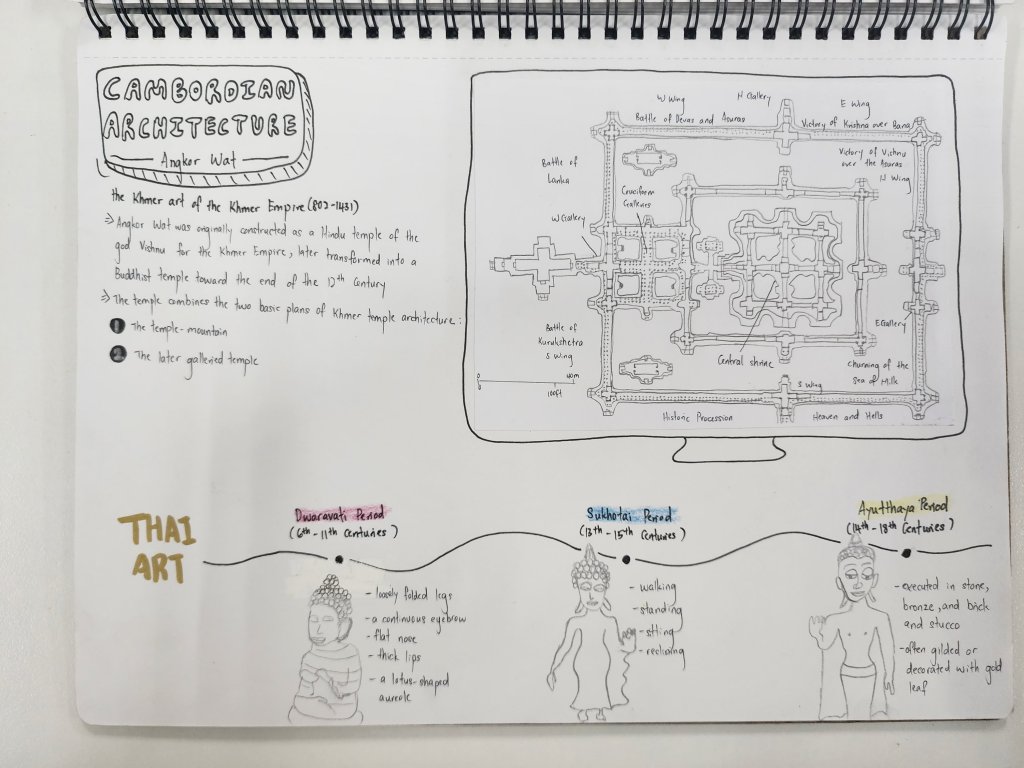 CAMBORDIAN
ARCHITECTURE
Angkor Wat
the Khmer art of the Khmer Empire (802-1431)
⇒ Angkor Wat was originally constructed as a Hindu temple of the
god Vishnu for the Khmer Empire, later transformed into a
Buddhist temple toward the end of the 12th Century
⇒ The temple combines the two basic plans of Khmer temple architecture:
1 The temple-mountain
2 The later galleried temple
W Wing
N Gallery
E Wing
Battle of Devas and Asuras
Victory of Krishna over Bana
Battle of
Lanka
Victory of Vishnu
over the Asuras
N Wing
Cruciform
Galleries
W Gallery
Battle of
Kurukshetra
S Wing
E Gallery
Central shrine
churning of the
Sea of Milk
0
40m
0
100ft
S Wing
Historic Procession
Heaven and Hells
THAI
ART
Dwaravati Period
(6th-11th Centuries)
- loosely folded legs
- a continuous eyebrow
- flat nose
- thick lips
- a lotus-shaped
aureole
Sukhotai Period
(13th-15th Centuries)
- walking
- standing
- sitting
- reclining
Ayutthaya Period
(14th-18th Centuries)
- executed in stone,
bronze, and brick
and stucco
- often gilded or
decorated with gold
leaf